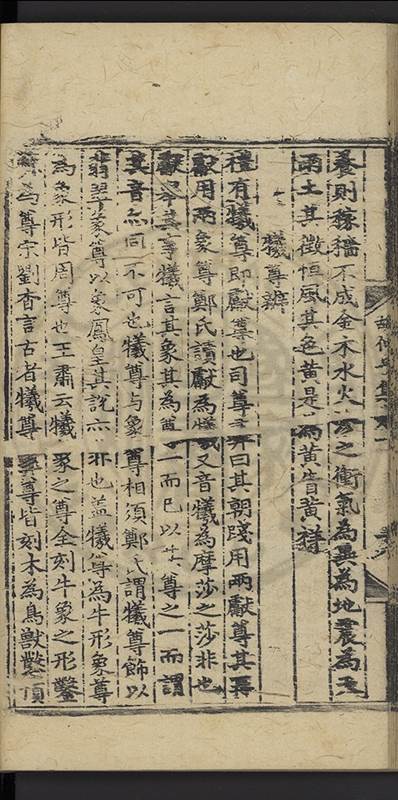 養則稼穡不成金木水火沴之衝氣為異為地震為
雨土其徵恒風其色黃是為黃眚黃祥
犧尊辨
禮有犧尊即獻尊也司尊彝曰其朝踐用兩獻尊其再
獻用兩象尊鄭氏讀獻為犧又音犧為摩莎之莎非也
獻舉其事犧言其象其為尊一而已以其尊之一而謂
其音亦同不可也犧尊與象尊相須鄭氏謂犧尊飾以
翡翠象尊以象鳳皇其說六非也蓋犧尊為牛形象尊
為象形皆周尊也王肅云犧象之尊全刻牛象之形鑿
為尊宗劉杳言古者犧尊彝尊皆刻木為鳥獸鑿頂